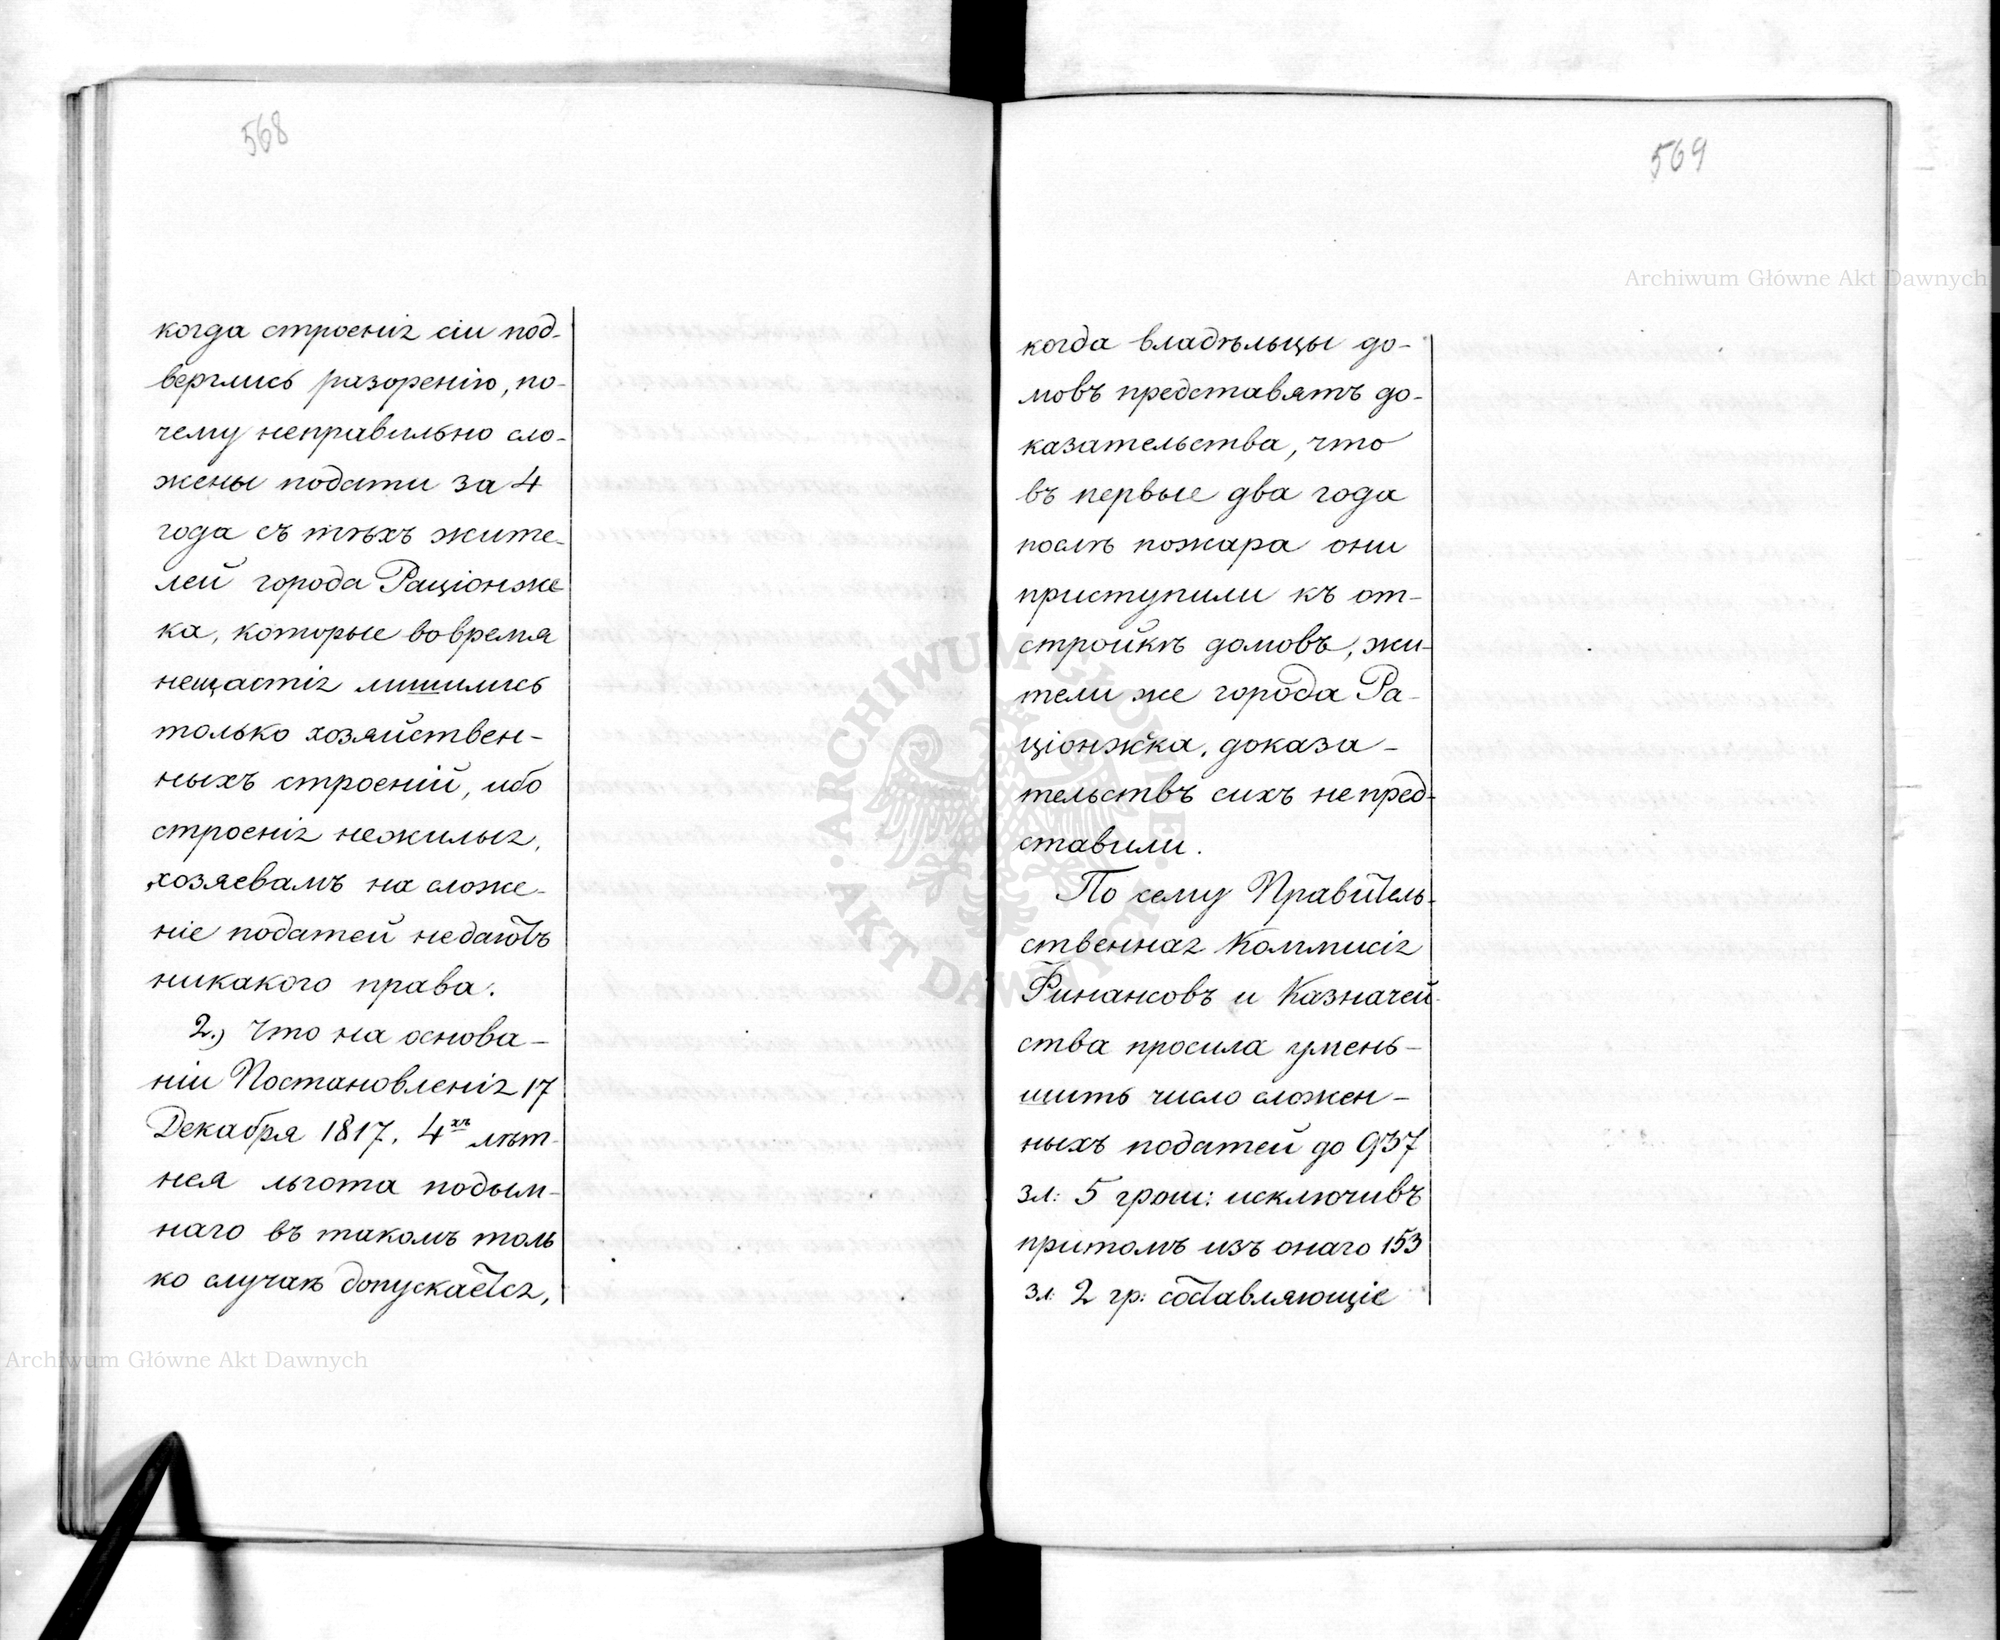 568
когда строенія сіи под-
верглись разоренію, по-
чему неправильно сло-
жены подати за 4
года съ тѣхъ жите-
лей города Раціонже
ка, которые вовремя
нещастія лишились
только хозяйствен-
ныхъ строеній, ибо
строенія нежилыя,
хозяевамъ на сложе-
ніе податей недаютъ
никакого права.
2.) Что на основа-
ніи Постановленія 17
Декабря 1817, 4хъ лѣт-
нея льгота подым-
наго въ такомъ толь
ко случаѣ допускается,
569
когда владѣльцы до-
мовъ представятъ до-
казательства, что
въ первые два года
послѣ пожара они
приступили къ от-
стройкѣ домовъ, жи-
тели же города Ра-
ціонжка, доказа-
тельствъ сихъ непред-
ставили.
По сему Правитель-
ственная Коммисія
Финансовъ и Казначей-
ства просила умень-
шить число сложен-
ныхъ податей до 937
зл: 5 грош: исключивъ
притомъ изъ онаго 153
зл: 2 гр: составляющіе
Archiwum Główne Akt Dawnych
Archiwum Główne Akt Dawnych
ARCHIWUM GŁÓWNE AKT DAWNYCH